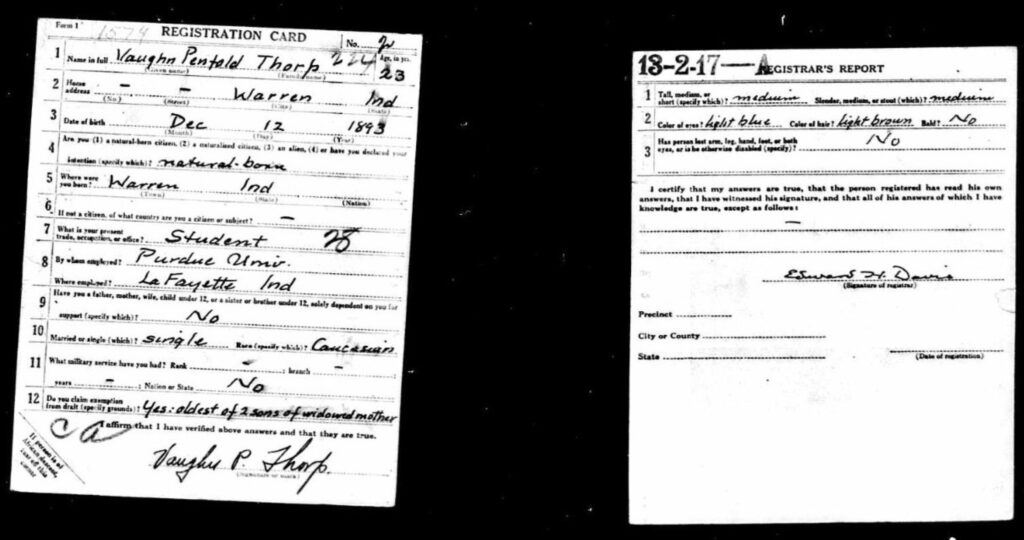 Form 1 1578 REGISTRATION CARD No. 2
1 Name in full Vaughn Penfold Thorp 224 Age, in yrs. 23
(Given name) (Family name)
2 Home address — — Warren Ind
(No.) (Street) (City) (State)
3 Date of birth Dec 12 1893
(Month) (Day) (Year)
4 Are you (1) a natural-born citizen, (2) a naturalized citizen, (3) an alien, (4) or have you declared your
intention (specify which)? natural-born
5 Where were you born? Warren Ind
(Town) (State) (Nation)
6 If not a citizen, of what country are you a citizen or subject? —
7 What is your present trade, occupation, or office? Student 28
8 By whom employed? Purdue Univ.
Where employed? LaFayette Ind
9 Have you a father, mother, wife, child under 12, or a sister or brother under 12, solely dependent on you for
support (specify which)? No
10 Married or single (which)? single Race (specify which)? Caucasian
11 What military service have you had? Rank —; branch —;
years —; Nation or State No
12 Do you claim exemption from draft (specify grounds)? Yes: oldest of 2 sons of widowed mother
I affirm that I have verified above answers and that they are true.
Vaughn P. Thorp.
(Signature or mark)
If person is of
African descent,
tear off this
corner
13-2-17—A REGISTRAR'S REPORT
1 Tall, medium, or short (specify which)? medium Slender, medium, or stout (which)? medium
2 Color of eyes? light blue Color of hair? light brown Bald? No
3 Has person lost arm, leg, hand, foot, or both
eyes, or is he otherwise disabled (specify)? No
I certify that my answers are true, that the person registered has read his own
answers, that I have witnessed his signature, and that all of his answers of which I have
knowledge are true, except as follows:
—
Edward H. Davis
(Signature of registrar)
Precinct
City or County
State
(Date of registration)